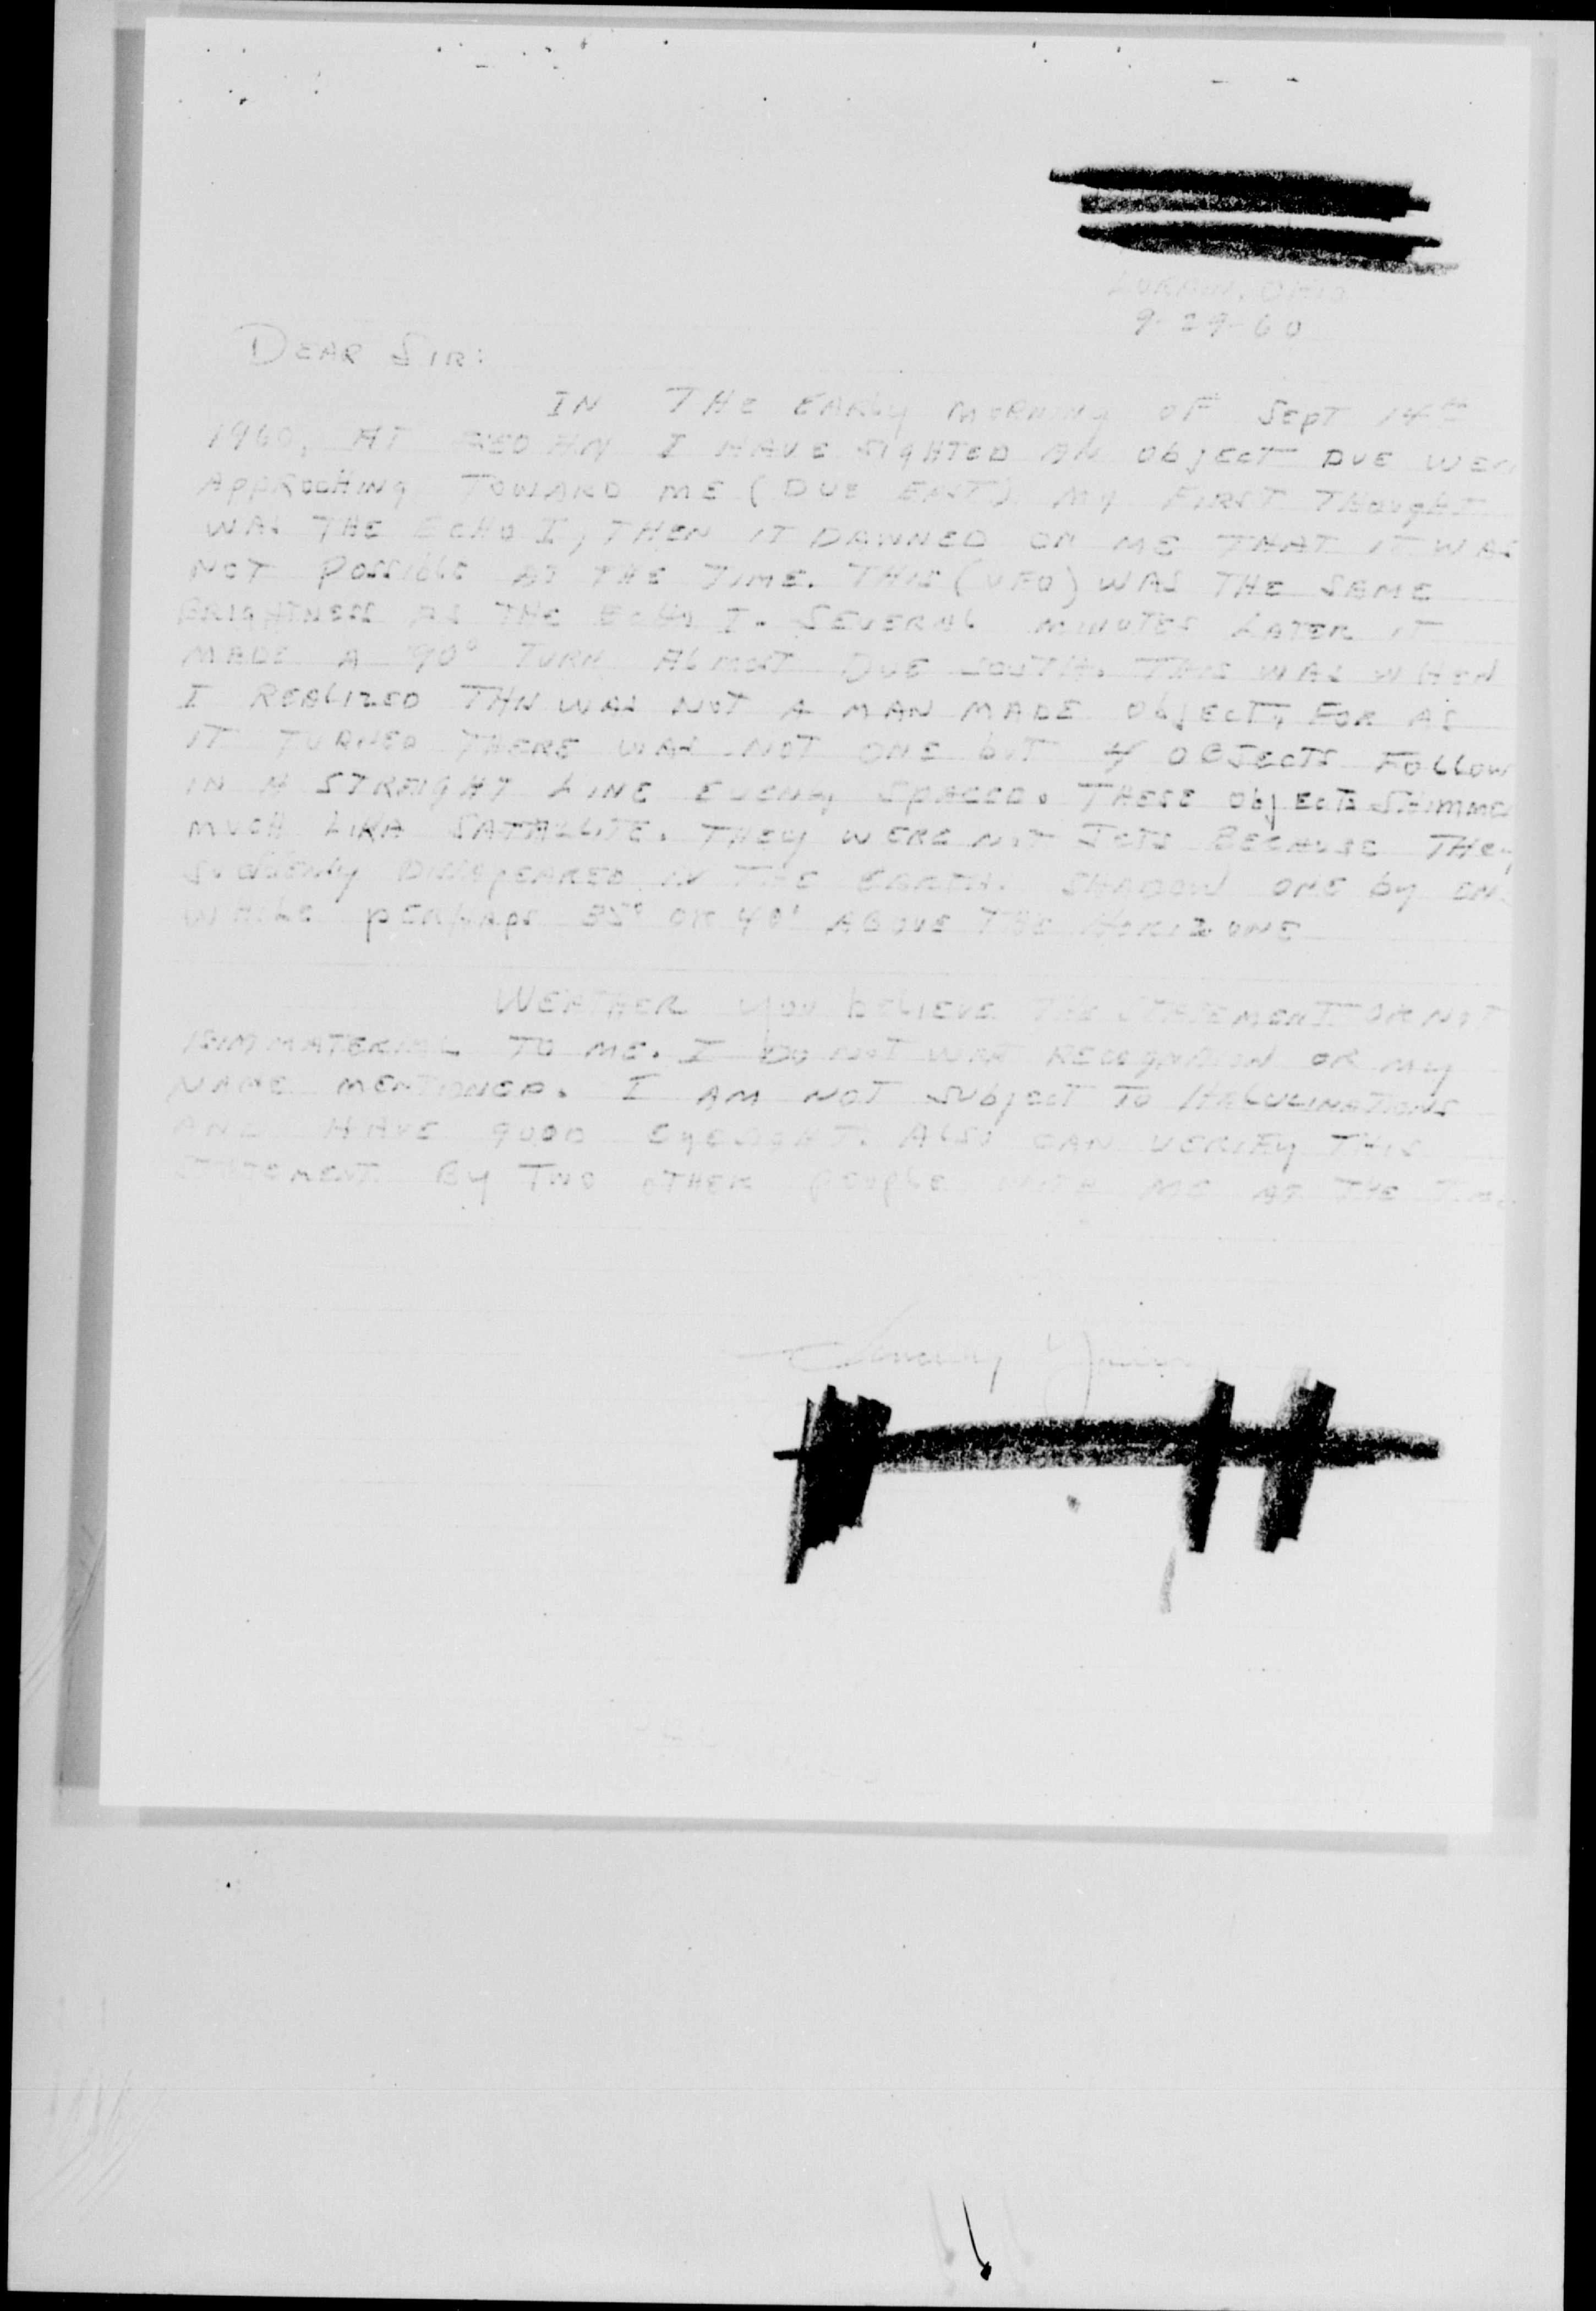 LORAIN, OHIO
9-29-60
DEAR SIR:
IN THE EARLY MORNING OF SEPT 14TH
1960, AT AM I HAVE SIGHTED AN ObJECT DUE WES
APPROCHING TOWARD ME (DUE EAST) MY FIRST THOUGHT
WAS THE ECHO I, THEN IT DAWNED ON ME THAT IT WAS
NOT POSSIbLE AT THE TIME. THIS (UFO) WAS THE SAME
BRIGHTNESS AS THE ECHO I. SEVERAL MINUTES LATER IT
MADE A 90° TURN ALMOST DUE SOUTH. THIS WAS WHEN
I REALIZED THIS WAS NOT A MAN MADE ObJECT, FOR AS
IT TURNED THERE WAS NOT ONE bUT 4 OBJECTS FOLLOW
IN A STRAIGHT LINE EVENLY SPACED. THESE ObJECTS SHIMME
MUCH LIKA SATALLITE. THEY WERE NOT JETS BECAUSE THEY
SUDDENLY DISSAPEARED IN THE EARTH. SHADOW ONE by ON
WHILE PERHAPS 35° OR 40° ABOVE THE HORIZONE
WEATHER YOU bELIEVE THE STATEMENT OR NOT
IS IMMATERIAL TO ME. I DO NOT RECOGNATION OR MY
NAME MENTIONED. I AM NOT SUbJECT TO HALUCINATIONS
AND HAVE GOOD EYESIGHT. ALSO CAN VERIFY THIS
STATEMENT BY TWO OTHER PEOPLE WITH ME AT THE